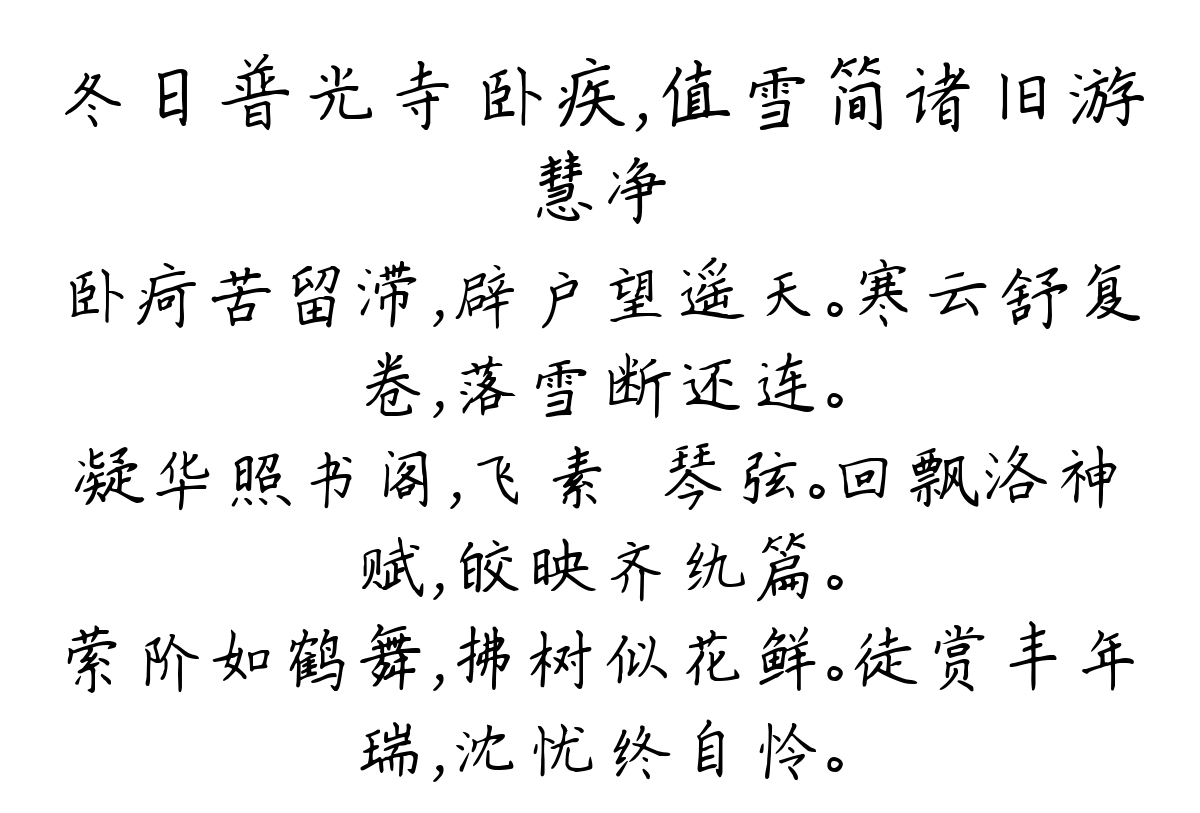 冬日普光寺卧疾,值雪简诸旧游
慧净
卧疴苦留滞,辟户望遥天。寒云舒复
卷,落雪断还连。
凝华照书阁,飞素 琴弦。回飘洛神
赋,皎映齐纨篇。
萦阶如鹤舞,拂树似花鲜。徒赏丰年
瑞,沈忧终自怜。